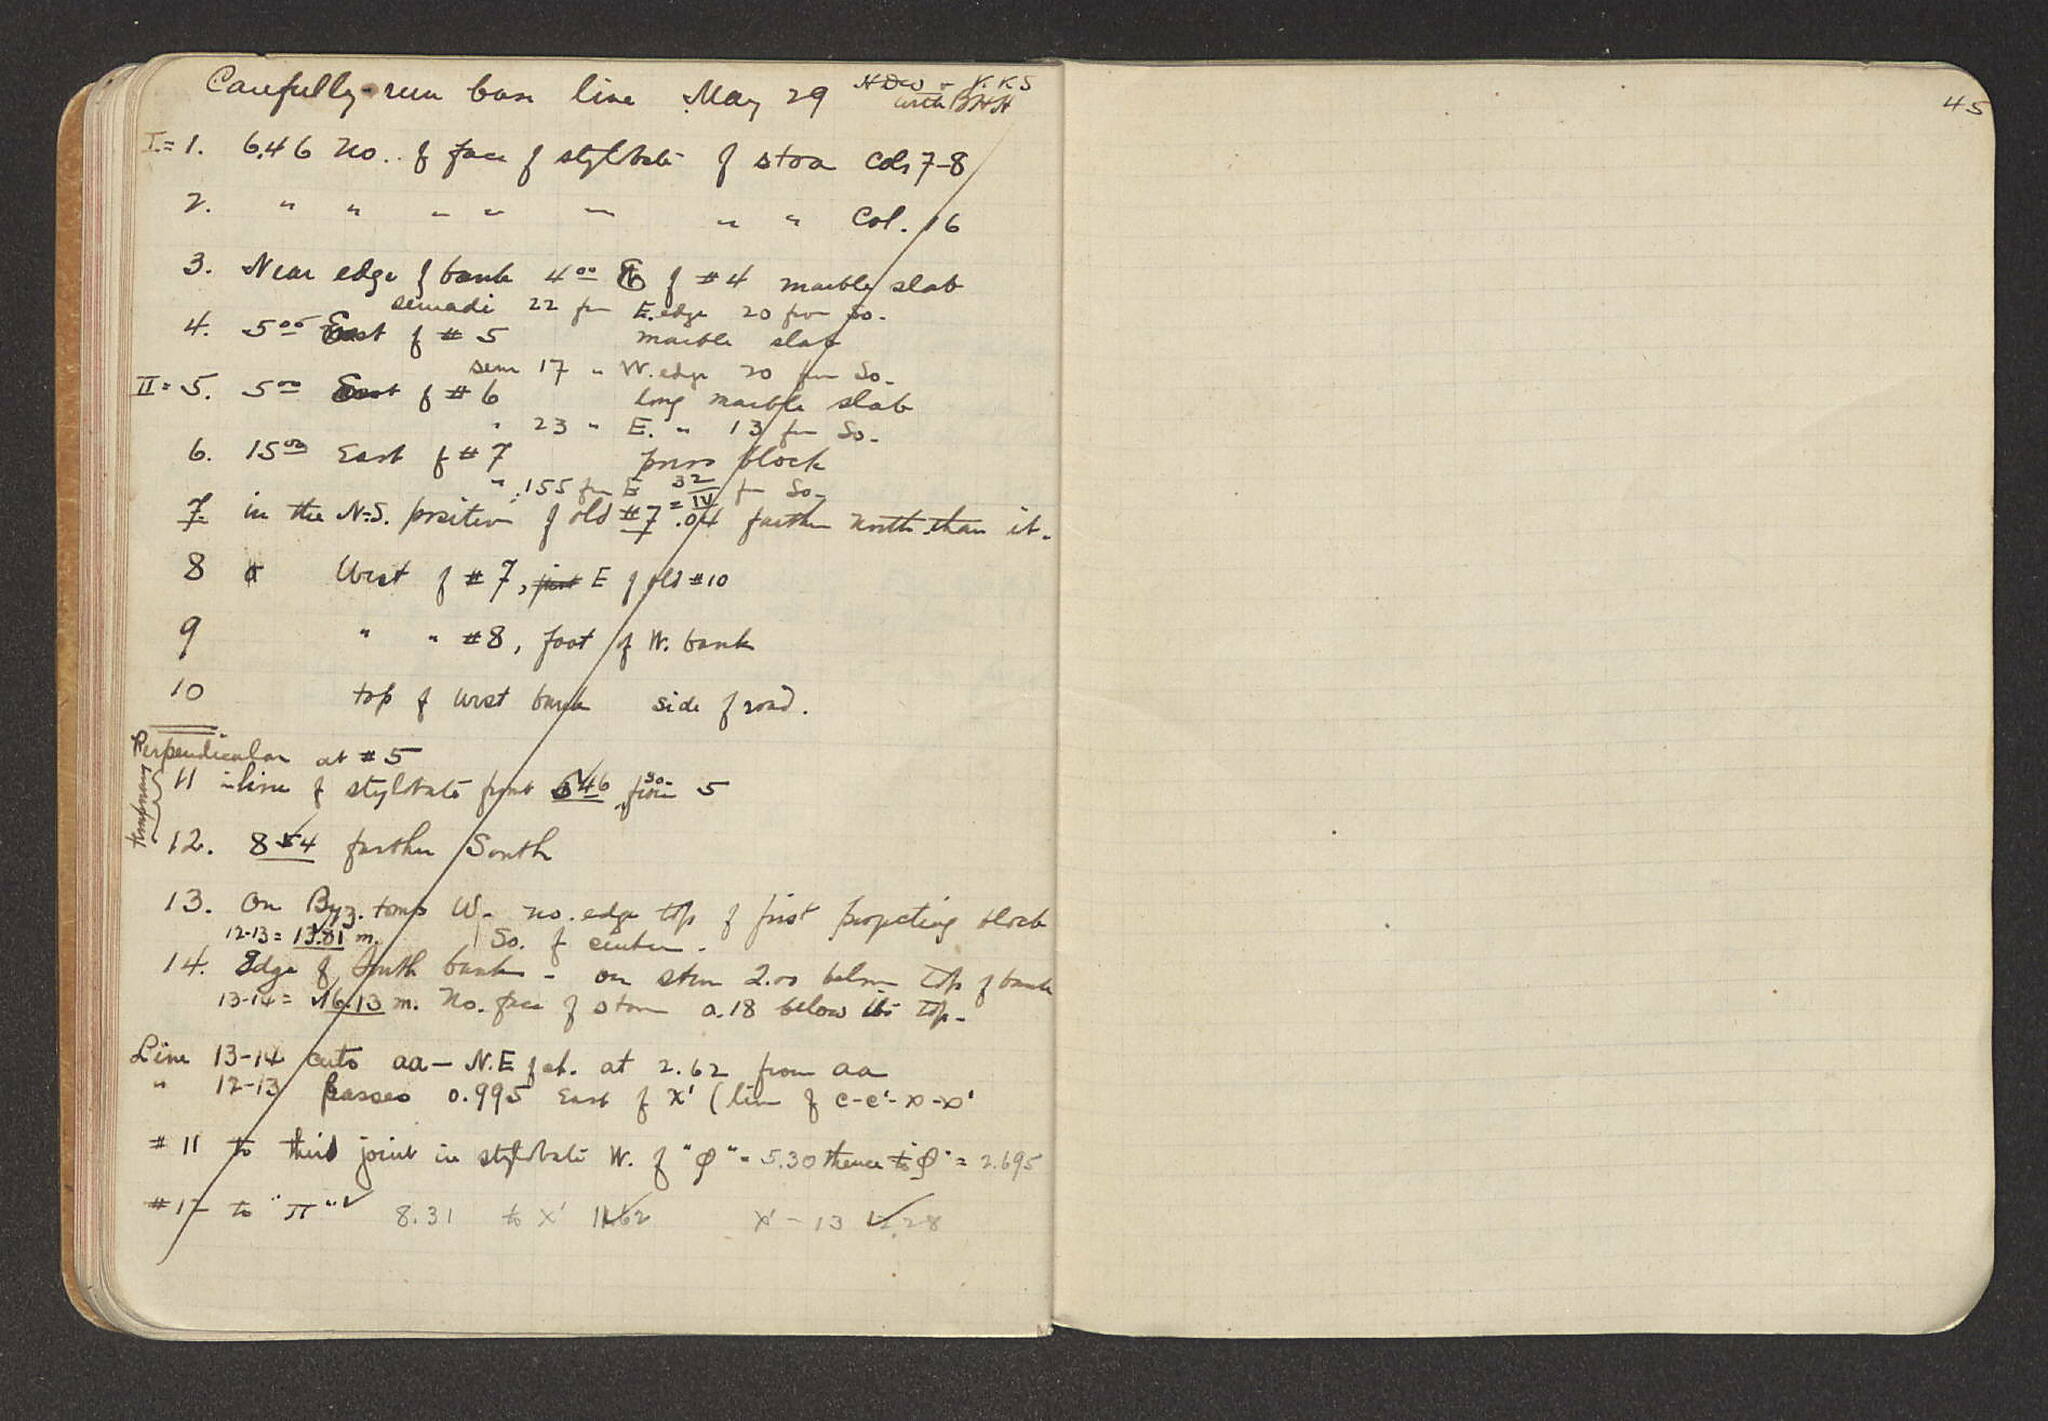 Carefully run base line May 29 HDW + V.KS
with BHH
I.= 1. 6.46 No. of face of stylobate of stoa Cols 7-8
2. " " " " " " " Col. 16
3. Near edge of bank 4.00 of #4 marble slab
22 fr E. edge 20 from So.
4. 5.00 East of # 5 marble slab
sem 17 " W. edge 20 from So.
II = 5. 5.00 East of # 6 long marble slab
" 23 " E. " 13 fr So.
6. 15.00 East of # 7 poros block
" .155 fr E 32 fr So.
= IV
7. in the N-S. position of old #7 .04 farther north than it.
8 West of # 7, just E of old #10
9 " " #8, foot of W. bank
10 top of West bank side of road.
Perpendicular at # 5
temporary
11 in line of stylobate front 6.46 so. from 5
12. 8.54 farther South
13. On Byz. tomb W. no. edge top of first projecting block
12-13 = 13.81 m. So. of center.
14. Edge of South bank - on stone 2.00 below top of bank
13-14 = 16.13 m. No. face of stone 0.18 below its top.
Line 13-14 cuts aa - N.E of ab. at 2.62 from aa
" 12-13 passes 0.995 East of X' (line of c-c'-x-x'
# 11 to third joint in stylobate W. of "φ" = 5.30 thence to "φ" = 2.695
#12 to "π" 8.31 to X' 11.62 X' - 13 12.28
45